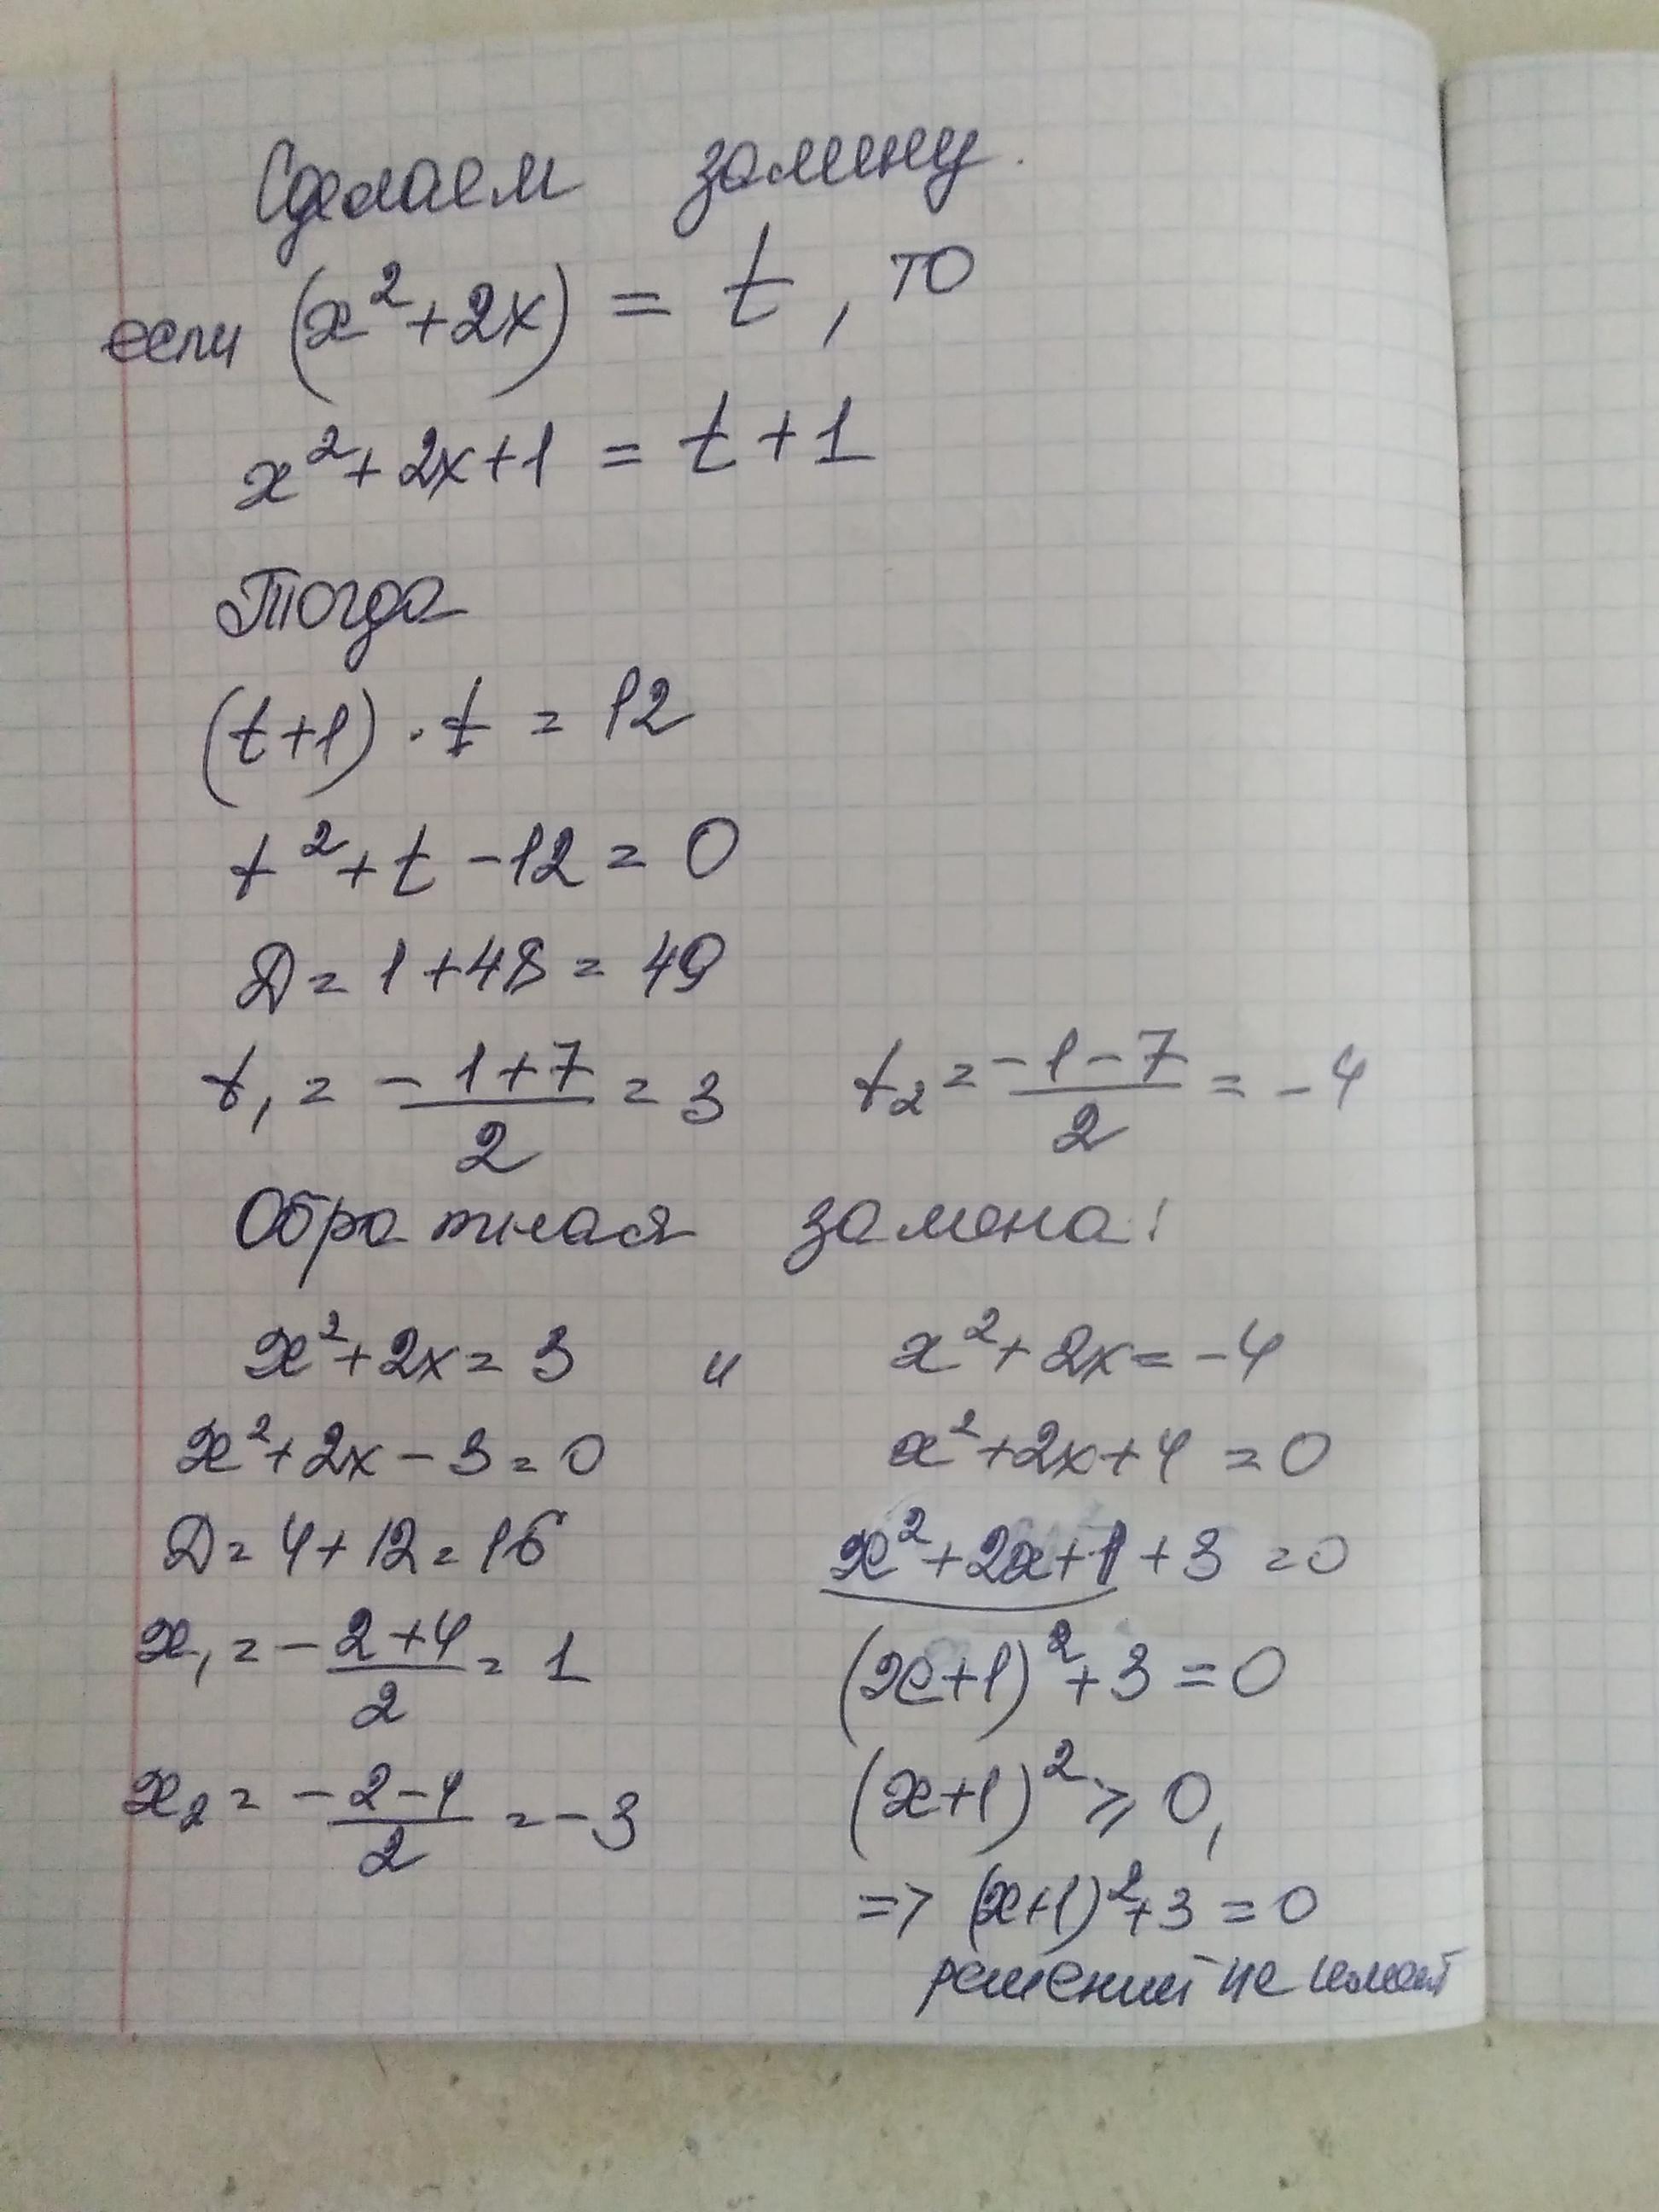 Сделаем замену.
если (x²+2x) = t, то
x²+2x+1 = t+1
Тогда
(t+1)·t = 12
t²+t-12=0
D=1+48=49
t₁ = -1+7/2 = 3 t₂ = -1-7/2 = -4
Обратная замена:
x²+2x=3 и x²+2x=-4
x²+2x-3=0 x²+2x+4=0
D=4+12=16 x²+2x+1+3=0
x₁ = -2+4/2 = 1 (x+1)²+3=0
x₂ = -2-4/2 = -3 (x+1)²⩾0,
=> (x+1)²+3=0
решений не имеет